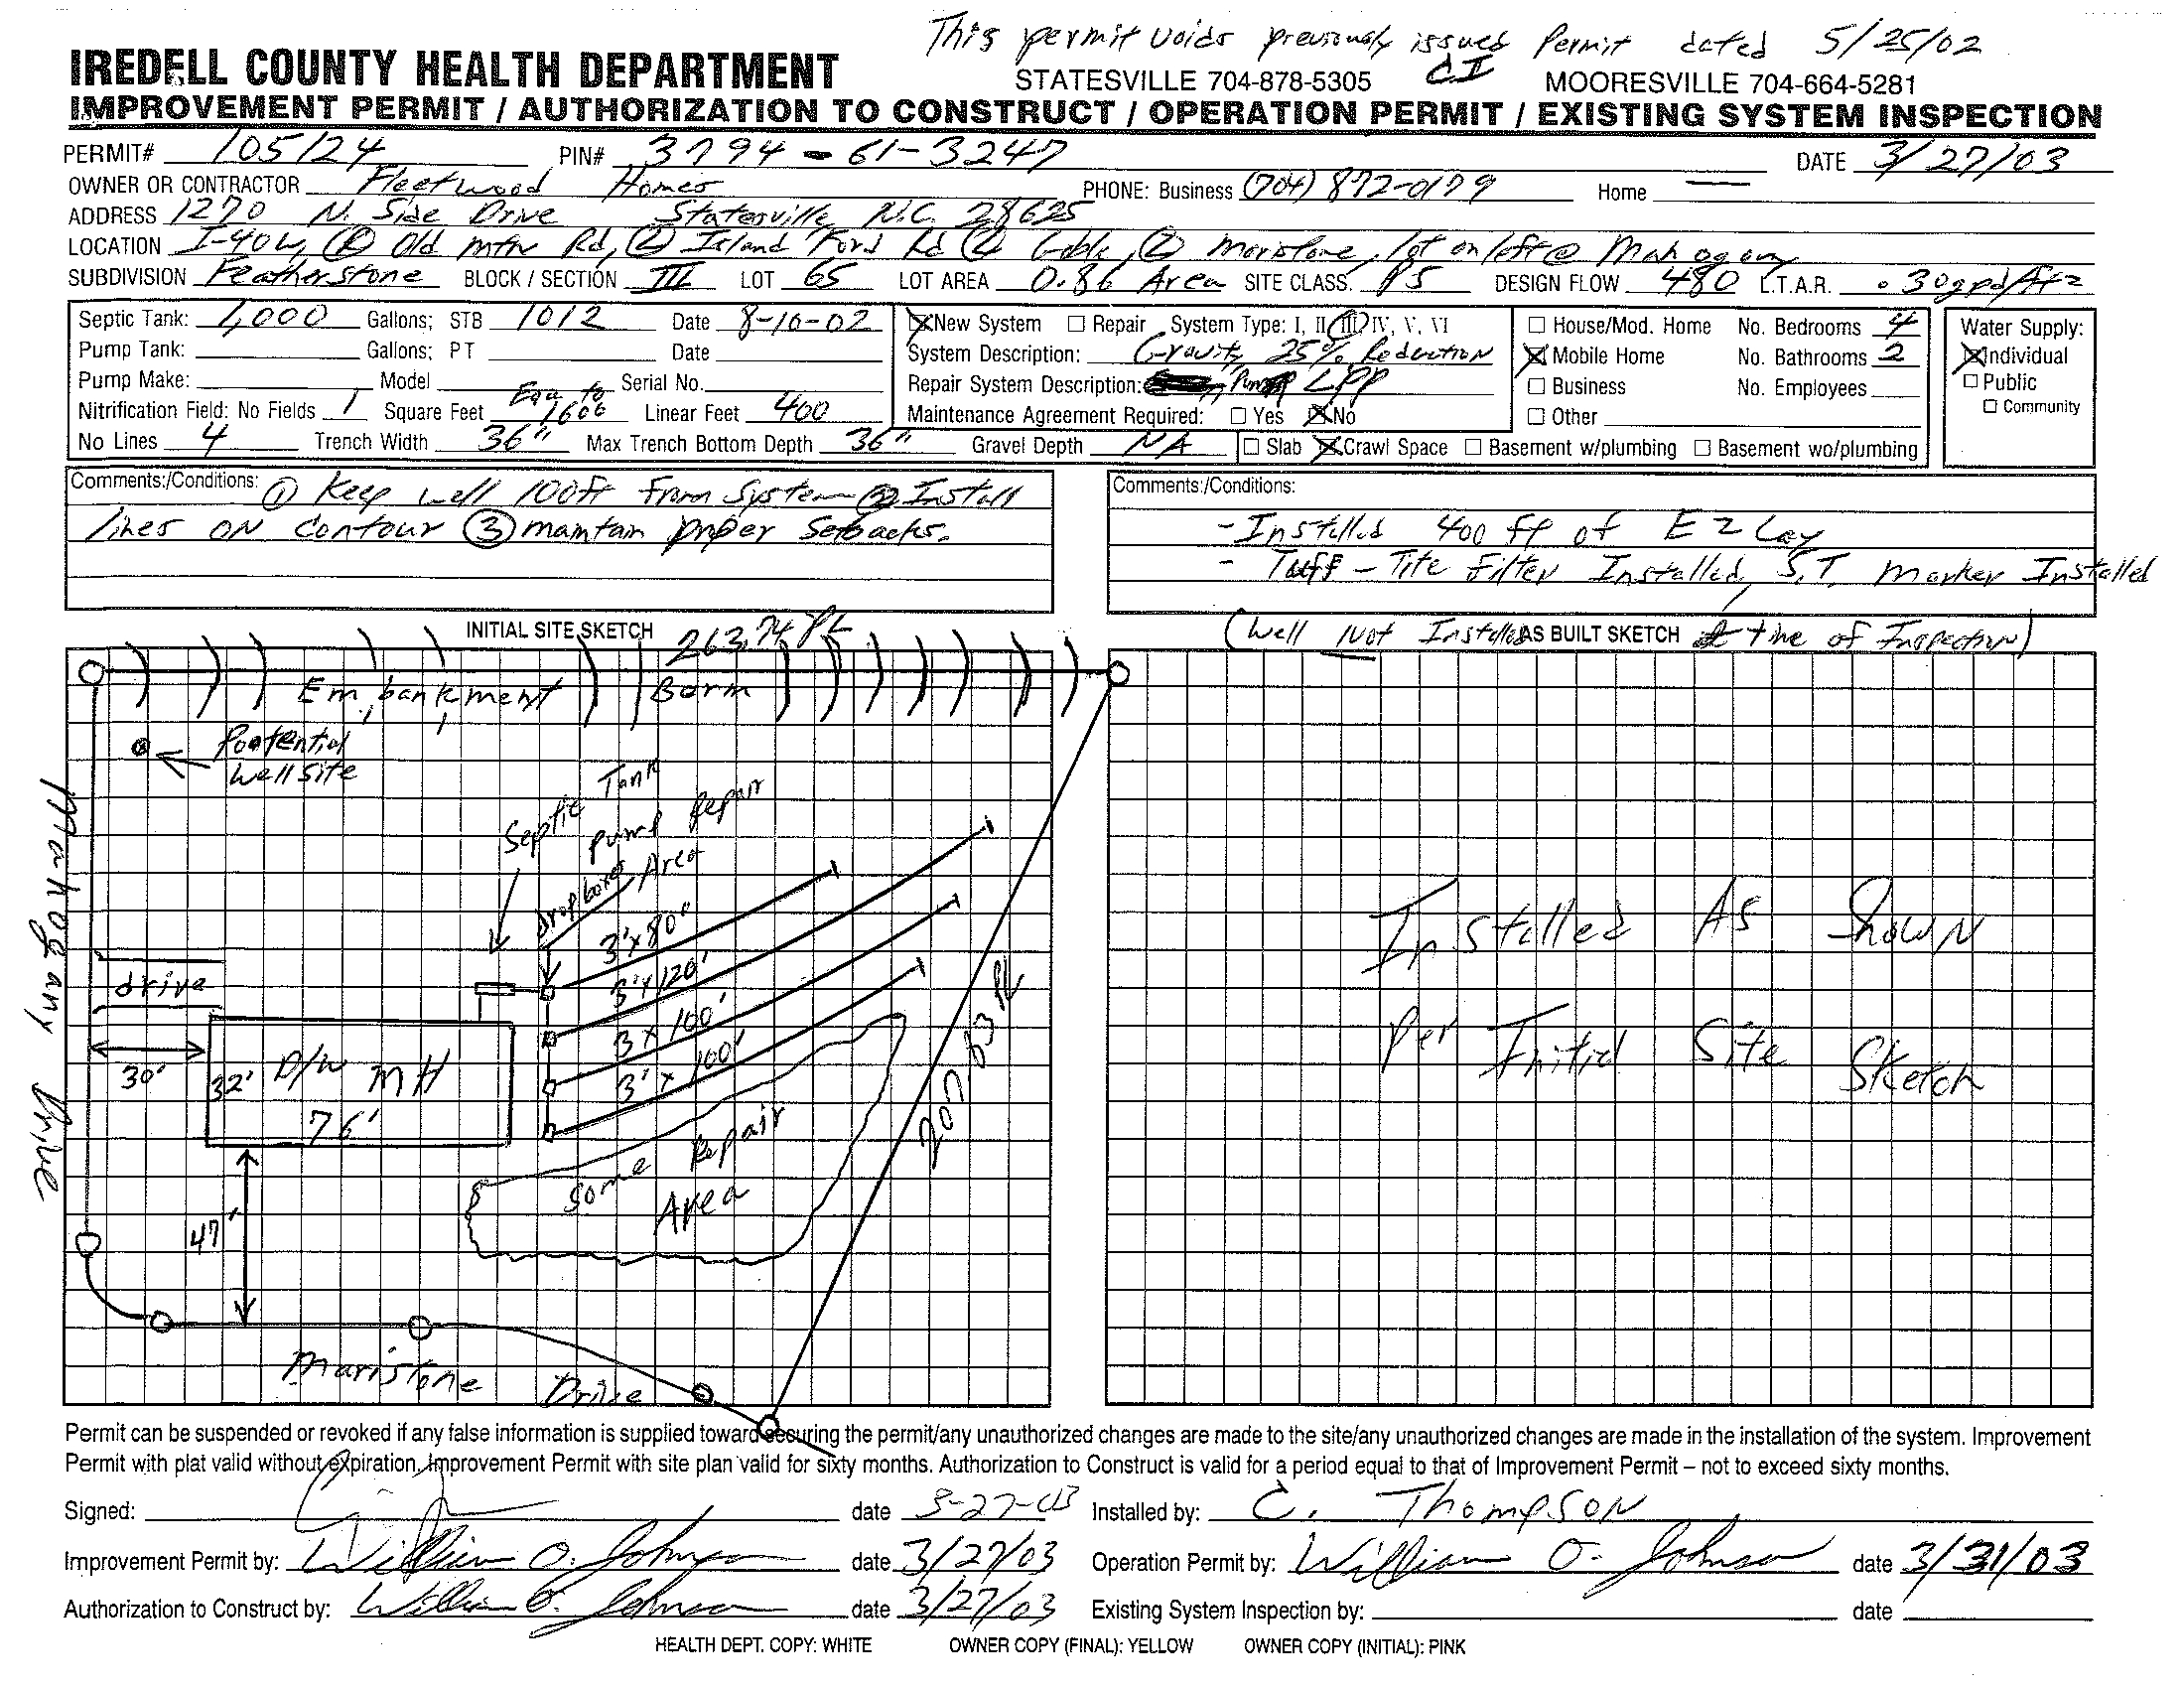 This permit voids previously issued Permit dated 5/25/02
IREDELL COUNTY HEALTH DEPARTMENT STATESVILLE 704-878-5305 CI MOORESVILLE 704-664-5281
IMPROVEMENT PERMIT / AUTHORIZATION TO CONSTRUCT / OPERATION PERMIT / EXISTING SYSTEM INSPECTION
PERMIT# 105124 PIN# 3794-61-3247 DATE 3/27/03
OWNER OR CONTRACTOR Fleetwood Homes PHONE: Business (704) 872-0179 Home —
ADDRESS 1270 N. Side Drive Statesville N.C. 28625
LOCATION I-40W, (R) Old mtn Rd, (L) Island Ford Rd (L) Goble, (L) Maristone, lot on left @ Mahogany
SUBDIVISION Featherstone BLOCK / SECTION III LOT 65 LOT AREA 0.86 Area SITE CLASS. PS DESIGN FLOW 480 L.T.A.R. .30gpd/ft2
Septic Tank: 1,000 Gallons; STB 1012 Date 8-16-02 New System Repair System Type: I, II, III, IV, V, VI House/Mod. Home No. Bedrooms 4 Water Supply:
Pump Tank: Gallons; PT Date System Description: Gravity 25% Reduction Mobile Home No. Bathrooms 2 Individual
Pump Make: Model Serial No. Repair System Description: Pump LPP Business No. Employees Public
Nitrification Field: No Fields 1 Square Feet Equ to 1600 Linear Feet 400 Maintenance Agreement Required: Yes No Other Community
No Lines 4 Trench Width 36" Max Trench Bottom Depth 36" Gravel Depth NA Slab Crawl Space Basement w/plumbing Basement wo/plumbing
Comments:/Conditions: ① Keep well 100ft From System ② Install
lines ON Contour ③ maintain proper Setbacks.
Comments:/Conditions:
- Installed 400 ft of EZ Lay
- Tuff-Tite Filter Installed, S.T. Marker Installed
INITIAL SITE SKETCH 263.74 PL
(Well Not Installed AS BUILT SKETCH at time of Inspection)
Embankment Berm
Pootential
Well site
Septic Tank
Pump Repair
Area
drop boxes
3'x80'
3'x120'
3 x 100'
3' x 100'
Mahogany Drive
drive
30'
32' D/W MH
76'
47'
Some Repair
Area
207.63 PL
Maristone Drive
Installed As Shown
Per Initial Site Sketch
Permit can be suspended or revoked if any false information is supplied toward securing the permit/any unauthorized changes are made to the site/any unauthorized changes are made in the installation of the system. Improvement
Permit with plat valid without expiration, Improvement Permit with site plan valid for sixty months. Authorization to Construct is valid for a period equal to that of Improvement Permit – not to exceed sixty months.
Signed: date 3-27-03 Installed by: C. Thompson
Improvement Permit by: William O. Johnson date 3/27/03 Operation Permit by: William O. Johnson date 3/31/03
Authorization to Construct by: William O. Johnson date 3/27/03 Existing System Inspection by: date
HEALTH DEPT. COPY: WHITE OWNER COPY (FINAL): YELLOW OWNER COPY (INITIAL): PINK